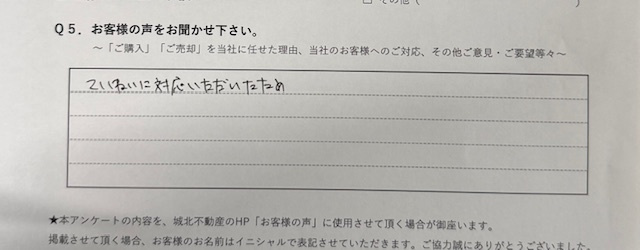 □ その他（　　　　　　　　　　）
Q５．お客様の声をお聞かせ下さい。
～「ご購入」「ご売却」を当社に任せた理由、当社のお客様へのご対応、その他ご意見・ご要望等々～
ていねいに対応いただいたため
★本アンケートの内容を、城北不動産のHP「お客様の声」に使用させて頂く場合が御座います。
掲載させて頂く場合、お客様のお名前はイニシャルで表記させていただきます。ご協力誠にありがとうございました。